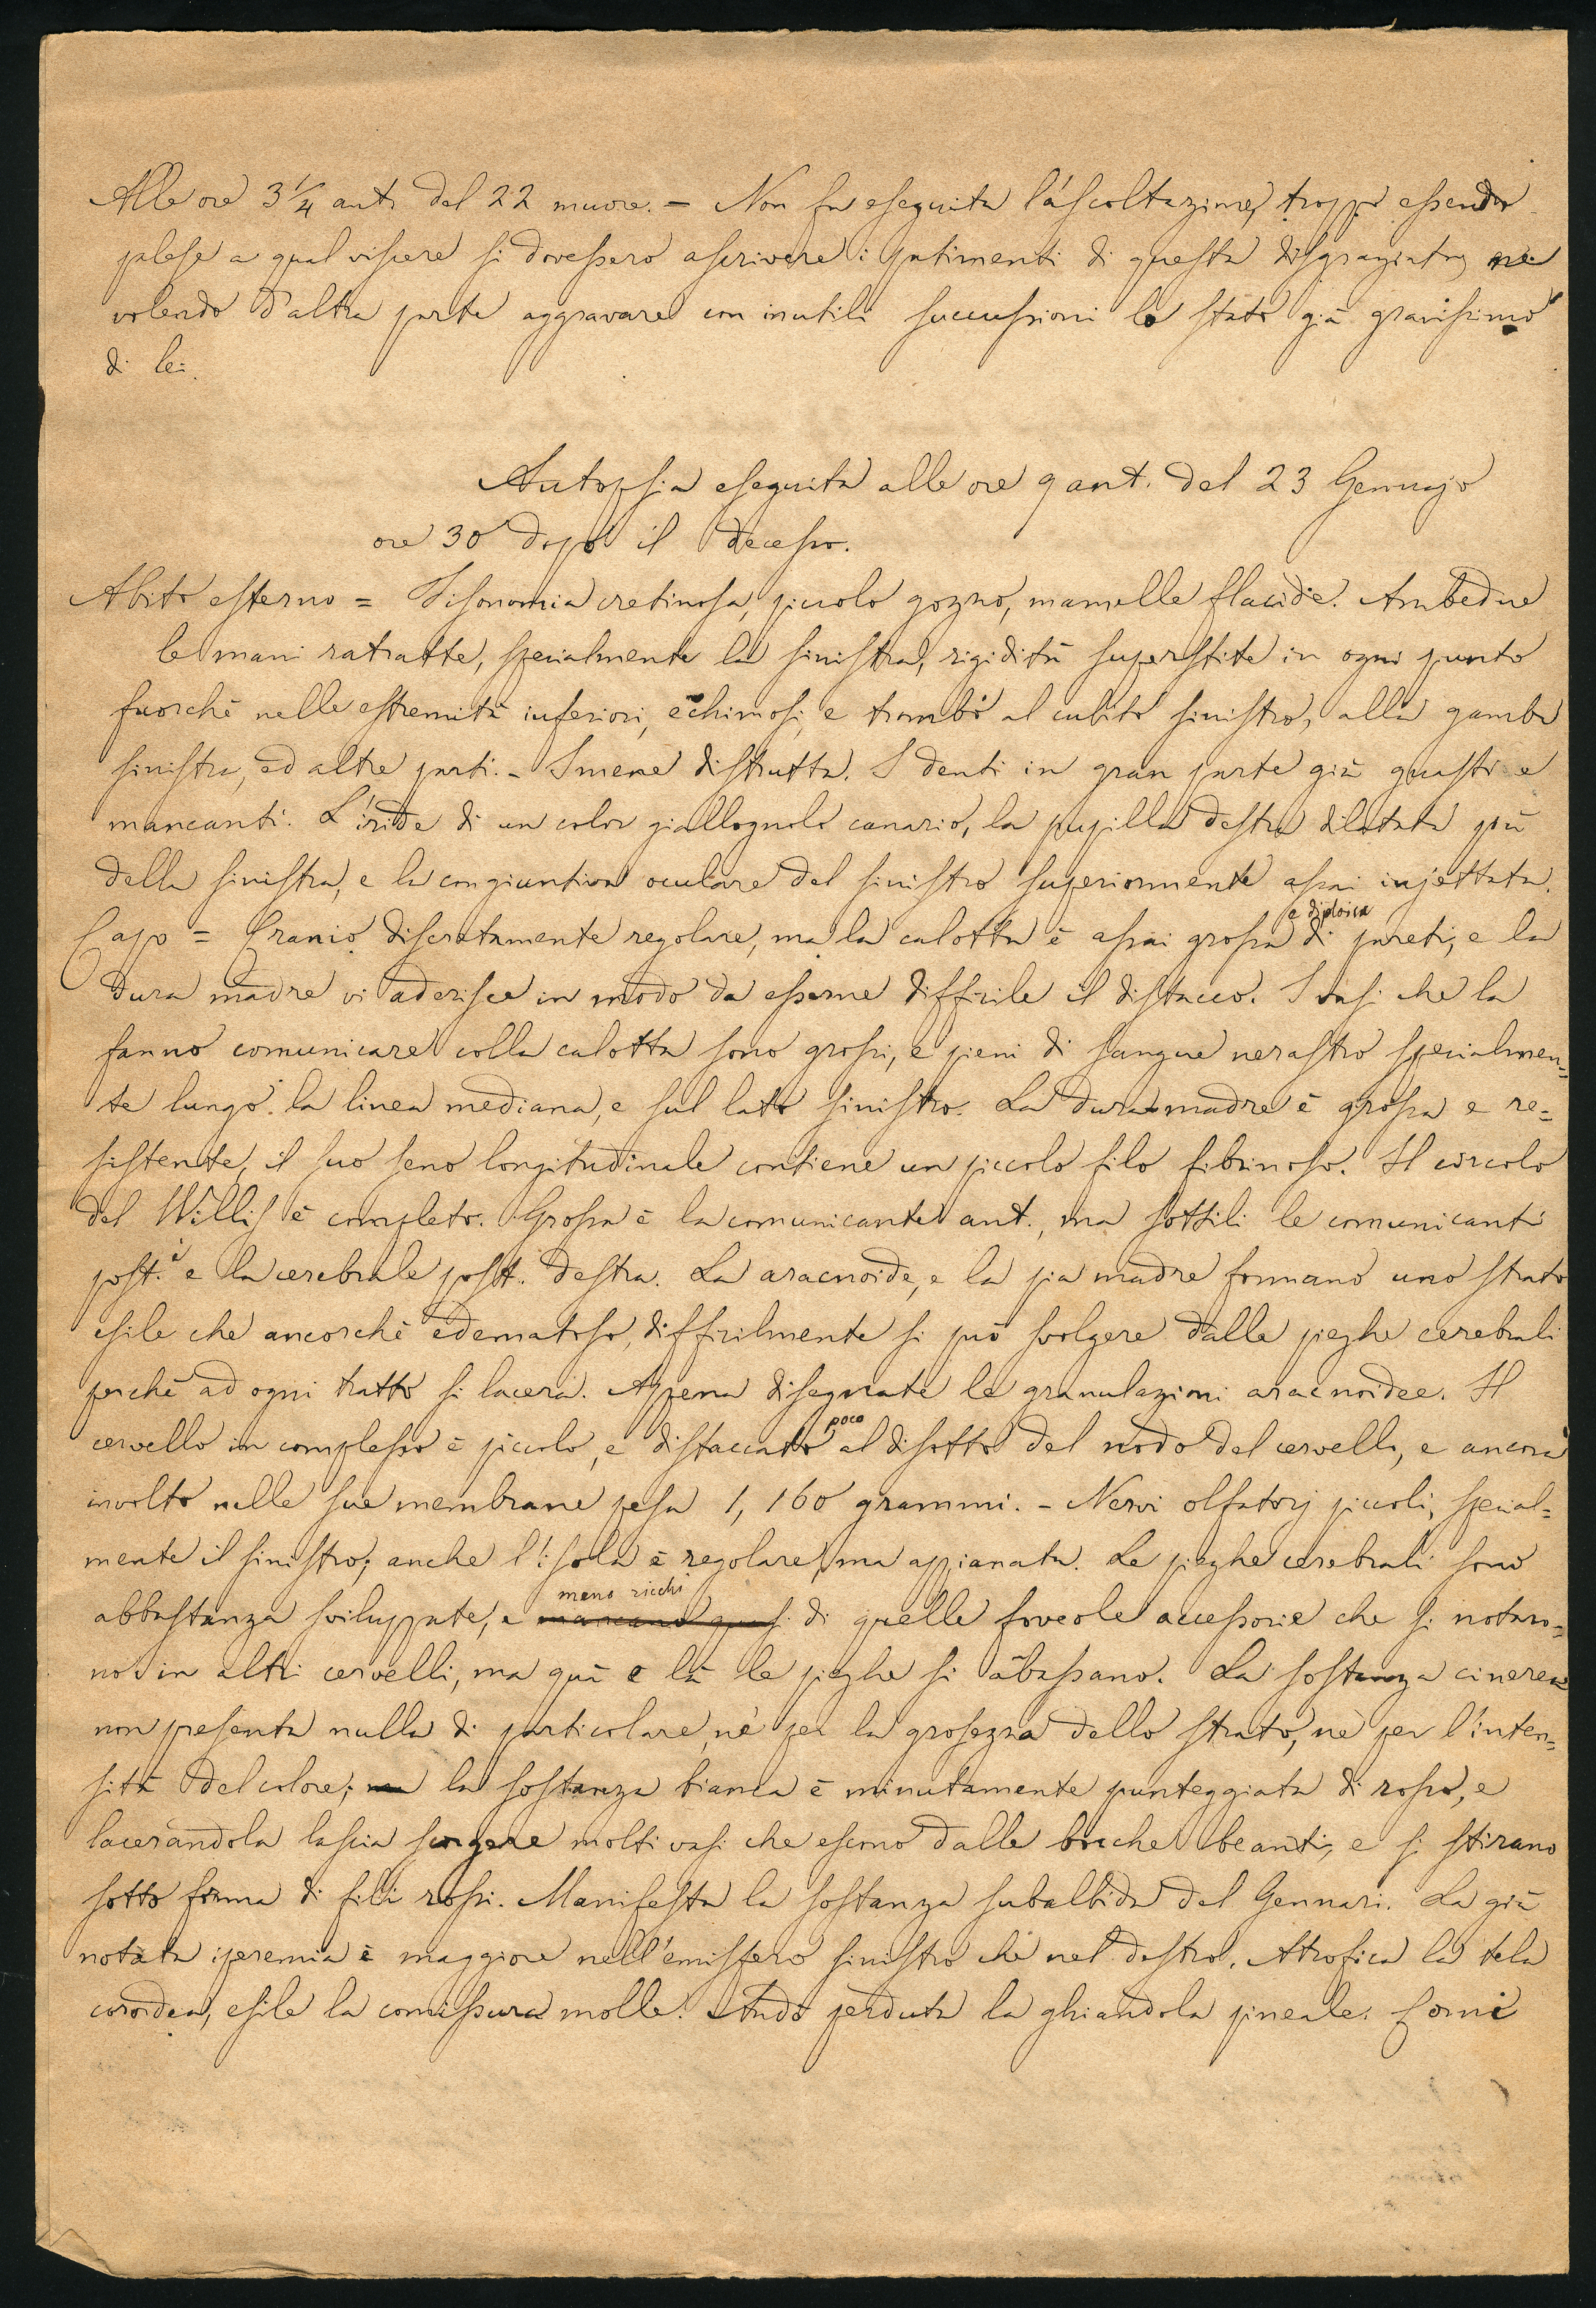 Alle ore 3 1/4 ant. del 22 muore. - Non fu eseguita l'ascoltazione, troppo essendo
palese a qual viscere si dovessero ascrivere i patimenti di questa disgraziata, nè
volendo d'altra parte aggravare con inutili succussioni lo stato già gravissimo
di lei.
Autopsia eseguita alle ore 9 ant. del 23 Gennajo
ore 30 dopo il decesso.
Abito esterno = Fisonomia cretinosa, piccolo gozzo, mamelle flacide. Ambedue
le mani ratratte, specialmente la sinistra, rigidità superstite in ogni punto
fuorchè nelle estremità inferiori, echimosi, e trombo al cubito sinistro, alla gamba
sinistra, ed altre parti. - Imene distrutta. I denti in gran parte già guasti e
mancanti. L'iride di un color giallognolo canario, la pupilla destra dilatata più
della sinistra, e la congiuntiva oculare del sinistro superiormente assai injettata.
e diploica
Capo = Cranio discretamente regolare, ma la calotta è assai grossa di pareti, e la
dura madre vi aderisce in modo da esserne difficile il distacco. I vasi che la
fanno comunicare colla calotta sono grossi, e pieni di sangue nerastro specialmen=
te lungo la linea mediana, e sul lato sinistro. La dura madre è grossa e re=
sistente, il suo seno longitudinale contiene un piccolo filo fibrinoso. Il circolo
del Willis è completo. Grossa è la comunicante ant., ma sottili le comunicanti
post.i e la cerebrale post. destra. La aracnoide, e la pia madre formano uno strato
esile che ancorchè edematoso, difficilmente si può svolgere dalle pieghe cerebrali
perchè ad ogni tratto si lacera. Appena disegnate le granulazioni aracnoidee. Il
poco
cervello in complesso è piccolo, e distaccato al disotto del nodo del cervello, e ancora
involto nelle sue membrane pesa 1,160 grammi. - Nervi olfatorj piccoli, special=
mente il sinistro; anche l'isola è regolare, ma appianata. Le pieghe cerebrali sono
meno ricchi
abbastanza sviluppate, e mancano quasi di quelle foveole accessorie che si notaro=
no in altri cervelli, ma quà e là le pieghe si abassano. La sostanza cinerea
non presenta nulla di particolare, nè per la grosezza dello strato, nè per l'inten=
sità del colore; ma la sostanza bianca è minutamente punteggiata di rosso, e
lacerandola lascia scorgere molti vasi che escono dalle boche beanti, e si stirano
sotto forma di fili rossi. Manifesta la sostanza subalbida del Gennari. La già
notata iperemia è maggiore nell'emisfero sinistro che nel destro. Atrofica la tela
coroidea, esile la comissura molle. Andò perduta la ghiandola pineale. Corni